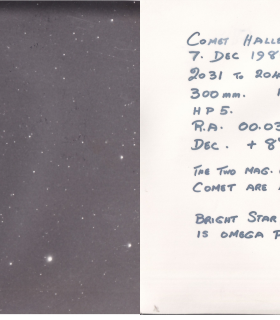 COMET HALLE
7. DEC 198
2031 TO 204
300 mm.
HP5.
R.A. 00.03
DEC. + 8
THE TWO MAG.
COMET ARE
BRIGHT STAR
IS OMEGA P